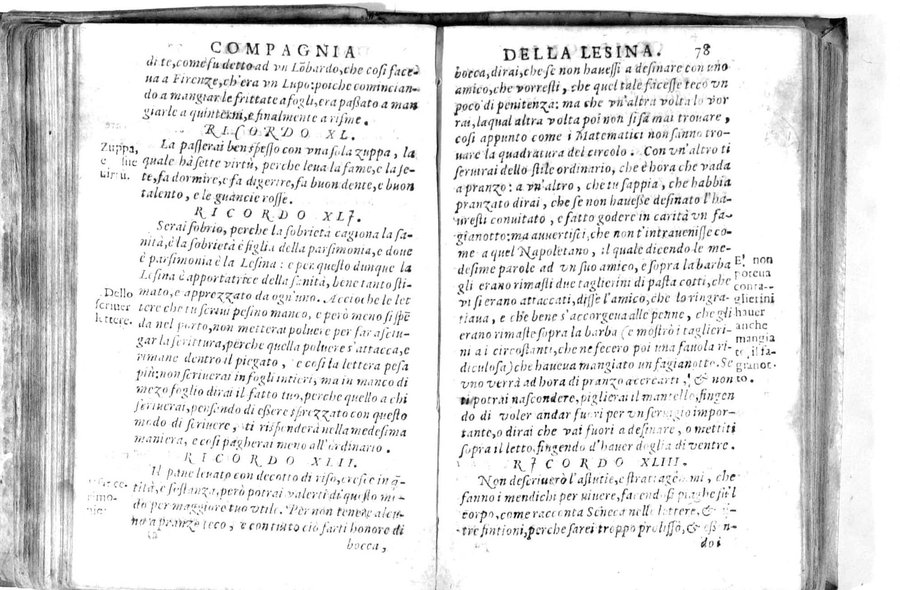 COMPAGNIA
di te, come fu detto ad vn Lõbardo, che così face-
ua a Firenze, ch'era vn Lupo: poiche comincian-
do a mangiar le frittate a fogli, era passato a man
giarle a quinterni, e finalmente a risme.
RICORDO XL.
La passerai ben spesso con vna sola zuppa, la
quale hà sette virtù, perche leua la fame, e la se-
te, fa dormire, e fa digerire, fa buon dente, e buon
talento, e le guancie rosse.
Zuppa,
e sue
uirtù.
RICORDO XLI.
Serai sobrio, perche la sobrietà cagiona la sa-
nità, è la sobrietà è figlia della parsimonia, e doue
è parsimonia è la Lesina: e per questo dunque la
Lesina è apportatrice della sanità, bene tanto sti-
mato, e apprezzato da ogn'uno. Accioche le let
tere che tu scriui pesino manco, e però meno si spẽ
da nel porto, non metterai poluere per far asciu-
gar la scrittura, perche quella poluere s'attacca, e
rimane dentro il piegato, e così la lettera pesa
più: non scriuerai in fogli intieri, ma in manco di
mezo foglio dirai il fatto tuo, perche quello a chi
scriuerai, pensando di essere sprezzato con questo
modo di scriuere, ti risponderà nella medesima
maniera, e così pagherai meno all'ordinario.
Dello
scriuer
lettere.
RICORDO XLII.
Il pane leuato con decotto di riso, cresce in q̃-
tità, e sostanza, però potrai valerti di questo mo-
do per maggiore tuo vtile. Per non tenere alcu-
no a pranzo teco, e con tutto ciò farti honore di
bocca,
DELLA LESINA. 78
bocca, dirai, che se non hauessi a desinare con uno
amico, che vorresti, che quel tale facesse teco vn
poco di penitenza: ma che vn'altra volta lo vor
rai, laqual altra volta poi non si sà mai trouare,
così appunto come i Matematici non sanno tro-
uare la quadratura del circolo. Con vn'altro ti
seruirai dello stile ordinario, che è hora che vada
a pranzo: a vn'altro, che tu sappia, che habbia
pranzato dirai, che se non hauesse desinato l'ha-
uresti conuitato, e fatto godere in carità vn fa-
gianotto: ma auuertisci, che non t'intrauenisse co-
me a quel Napoletano, il quale dicendo le me-
desime parole ad vn suo amico, e sopra la barba
gli erano rimasti due taglierini di pasta cotti, che
vi si erano attaccati, disse l'amico, che lo ringra-
tiaua, e che bene s'accorgeua alle penne, che gli
erano rimaste sopra la barba (e mostrò i taglieri-
ni a i circostanti, che ne fecero poi una fauola ri-
diculosa) che haueua mangiato un fagianotto. Se
vno verrà ad hora di pranzo a cercarti, & non
ti potrai nascondere, piglierai il mantello, fingen
do di voler andar fuori per vn seruigio impor-
tante, o dirai che vai fuori a desinare, o mettiti
sopra il letto, fingendo d'hauer doglia di ventre.
E' non
poteua
conta-
glierini
hauer
anche
mangia
to il fa-
gianot-
to.
RICORDO XLIII.
Non descriuerò l'astutie, e strattagemi, che
fanno i mendichi per uiuere, facendosi piaghe su'l
corpo, come racconta Seneca nelle lettere, &
tre fintioni, perche sarei troppo prolisso, &
doi